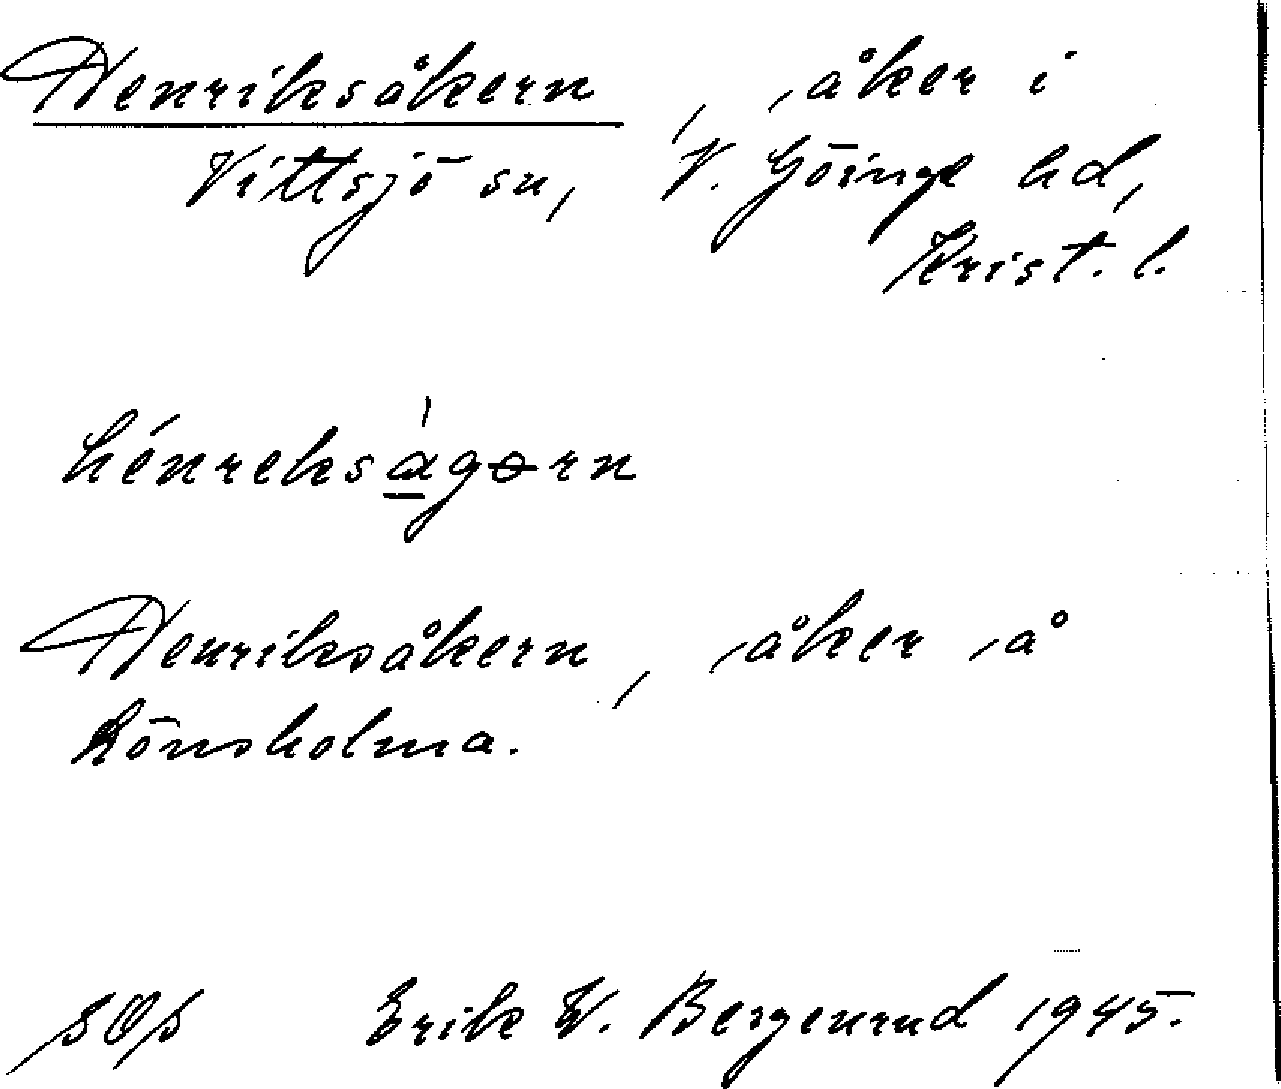 Henriksåkern, åker i
Vittsjö sn, V. Göinge hd,
Krist. l.
hénreksàgərn
Henriksåkern, åker å
Rönsholma.
Erik W. Bergenrud 1945.